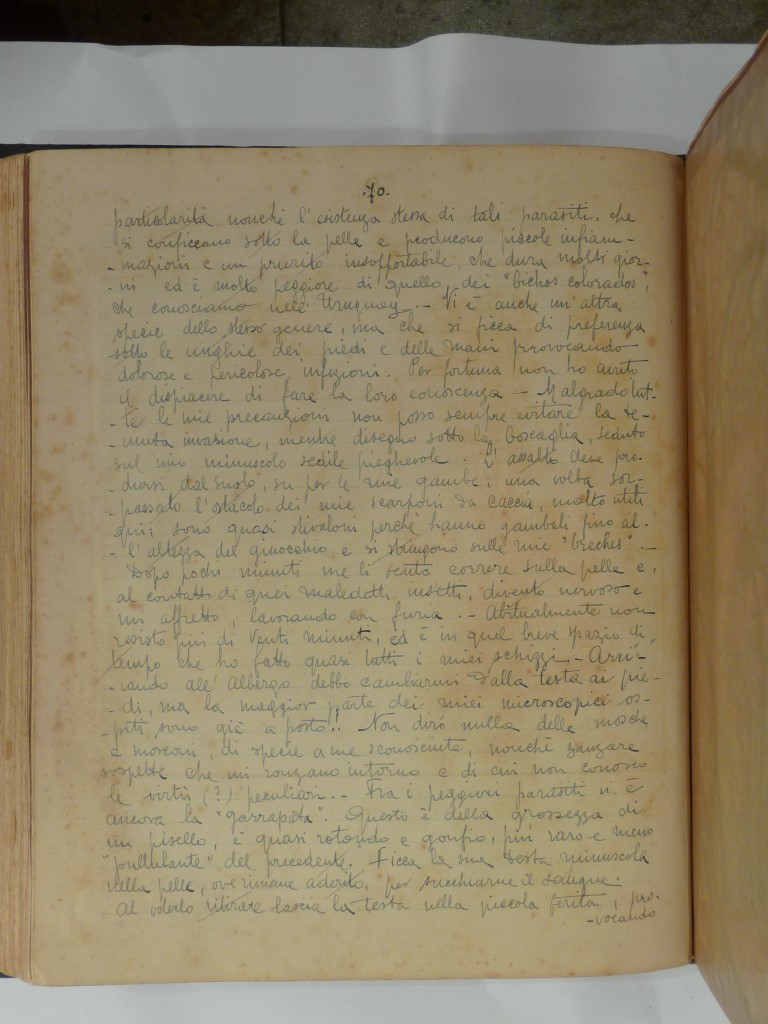 .70.
particolarità nonchè l'esistenza stessa di tali parasiti, che
si conficcano sotto la pelle e producono piccole infiam-
-mazioni e un prurito insopportabile, che dura molti gior-
-ni ed è molto peggiore di quello, dei "bichos colorados",
che conosciamo nell'Uruguay.- Vi è anche un'altra
specie dello stesso genere, ma che si ficca di preferenza
sotto le unghie dei piedi e delle mani provocando
dolorose e pericolose infezioni. Per fortuna non ho avuto
il dispiacere di fare la loro conoscenza - Malgrado tut-
-te le mie precauzioni non posso sempre evitare la te-
-muta invasione, mentre disegno sotto la boscaglia, seduto
sul mio minuscolo sedile pieghevole. L'assalto deve pro-
-dursi dal suolo, su per le mie gambe, una volta sor-
-passato l'ostacolo dei mie scarponi da caccia, molto utili
qui; sono quasi stivaloni perchè hanno gambali fino al-
-l'altezza del ginocchio e si stringono sulle mie "breches".-
Dopo pochi minuti me li sento correre sulla pelle e,
al contatto di quei maledetti insetti, divento nervoso e
mi affretto, lavorando con furia.- Abitualmente non
resisto più di venti minuti, ed è in quel breve spazio di
tempo che ho fatto quasi tutti i miei schizzi.- Arri-
-vando all'albergo debbo cambiarmi dalla testa ai pie-
-di, ma la maggior parte dei miei microscopici os-
-piti sono già a posto!! Non dirò nulla delle mosche
e mosconi, di specie a me sconosciute, nonchè zanzare
sospette che mi ronzano intorno e di cui non conosco
le virtù (?) peculiari.- Fra i peggiori parasiti v. è
ancora la "garrapata". Questo è della grossezza di
un pisello, è quasi rotondo e gonfio, più raro e meno
"pullulante" del precedente. Ficca la sua testa minuscola
nella pelle, ove rimane aderito, per succhiarne il sangue.
Al volerlo ritirare lascia la testa nella piccola ferita, pro-
-vocando